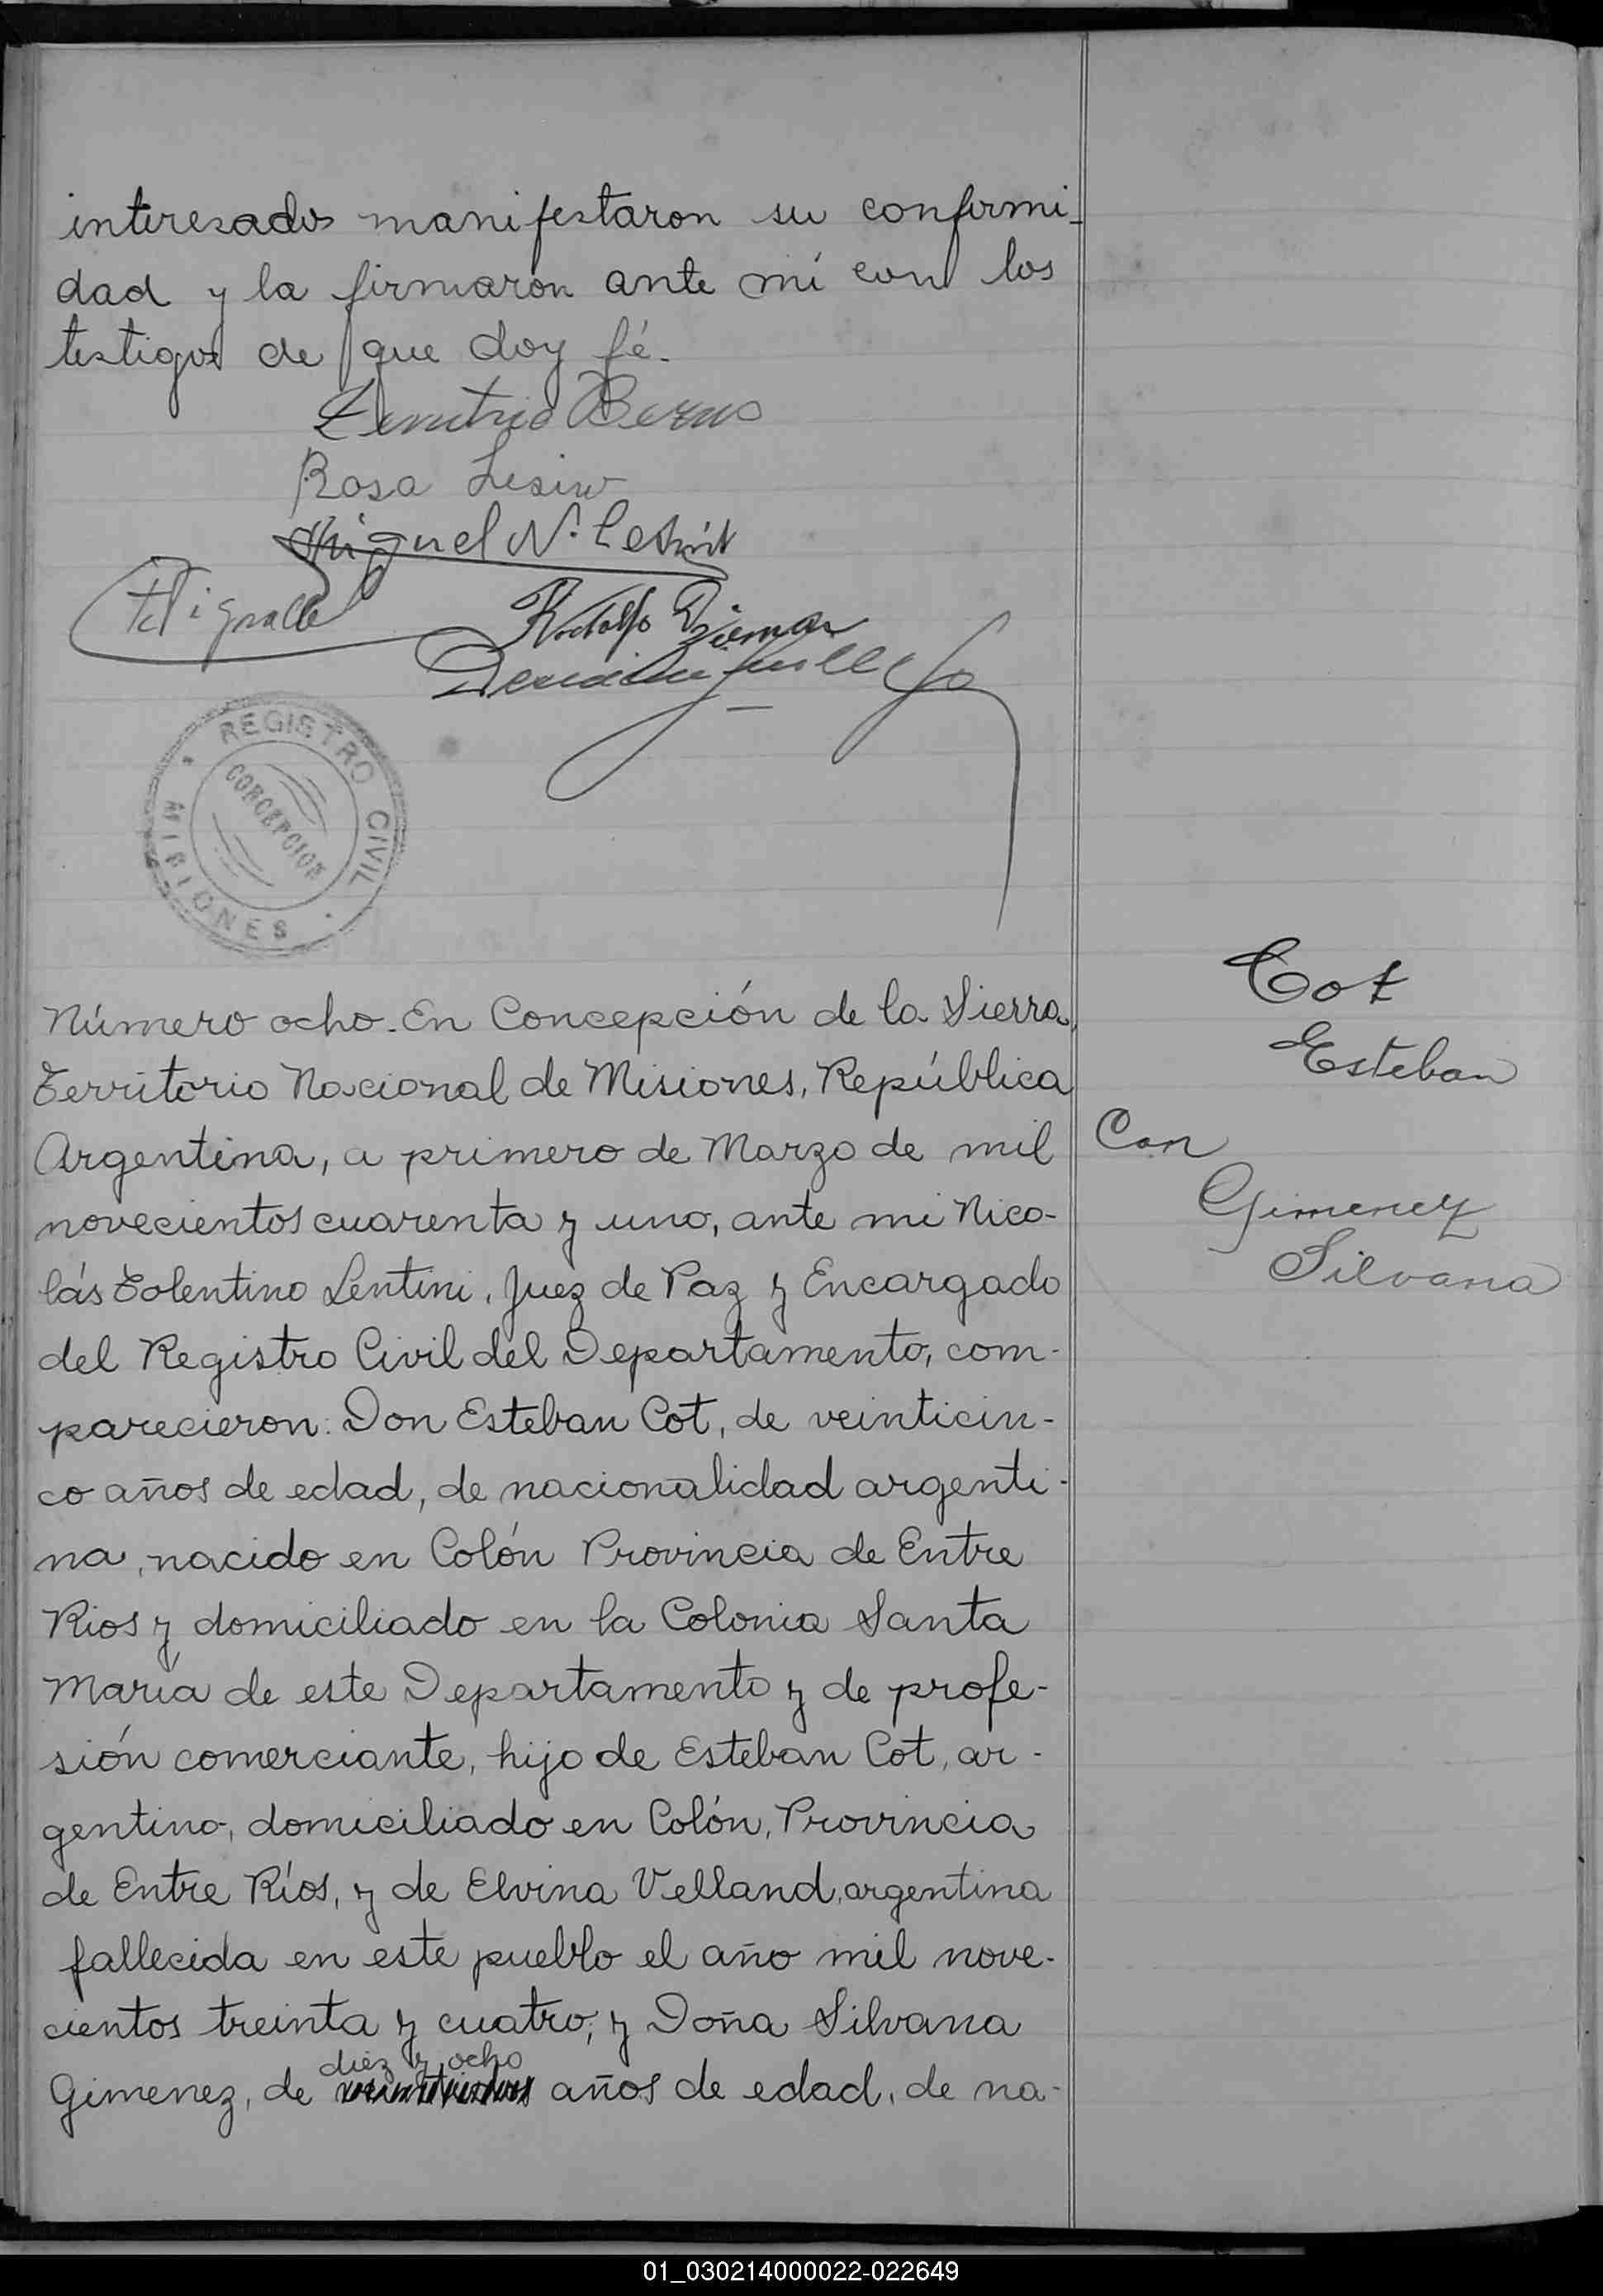 interesados manifestaron su confirmi-
dad y la firmaron ante mí con los
testigos de que doy fé.
Demitrio
Rosa Lesiw
Miguel N.
Rodolfo
REGISTRO CIVIL
CONCEPCION
MISIONES
Número ocho. En Concepción de la Sierra,
Territorio Nacional de Misiones, República
Argentina, a primero de Marzo de mil
novecientos cuarenta y uno, ante mi Nico-
lás Tolentino Lentini, Juez de Paz y Encargado
del Registro Civil del Departamento, com-
parecieron: Don Esteban Cot, de veinticin-
co años de edad, de nacionalidad argenti-
na, nacido en Colón Provincia de Entre
Rios y domiciliado en la Colonia Santa
María de este Departamento y de profe-
sión comerciante, hijo de Esteban Cot, ar-
gentino, domiciliado en Colón, Provincia
de Entre Ríos, y de Elvina Velland, argentina
fallecida en este pueblo el año mil nove-
cientos treinta y cuatro; y Doña Silvana
diez y ocho
Gimenez, de años de edad, de na-
Cot
Esteban
Con
Gimenez
Silvana
01_030214000022-022649